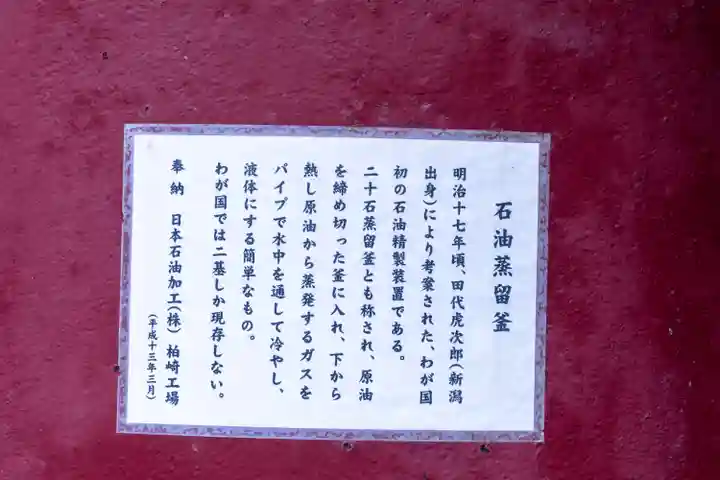 石油蒸留釜
明治十七年頃、田代虎次郎(新潟
出身)により考案された、わが国
初の石油精製装置である。
二十石蒸留釜とも称され、原油
を締め切った釜に入れ、下から
熱し原油から蒸発するガスを
パイプで水中を通して冷やし、
液体にする簡単なもの。
わが国では二基しか現存しない。
奉納 日本石油加工(株)柏崎工場
(平成十三年三月)